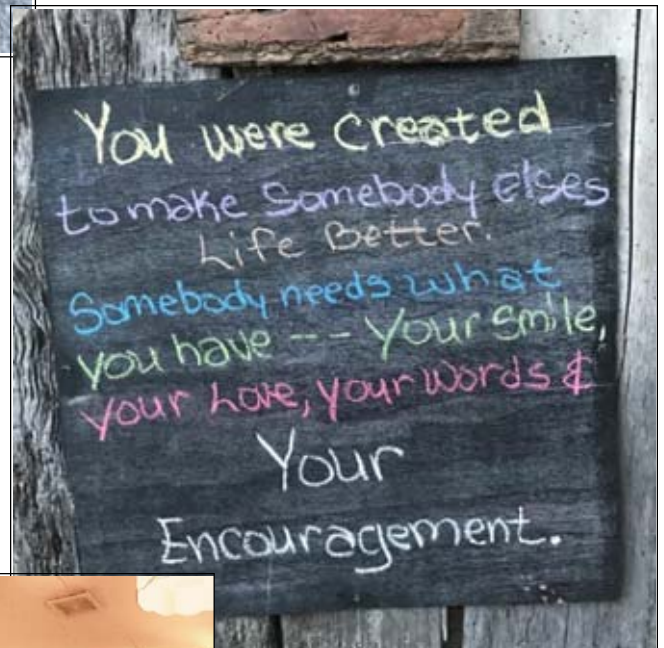 You were created
to make Somebody elses
Life Better.
Somebody needs what
you have --- Your Smile,
your Love, your words &
Your
Encouragement.